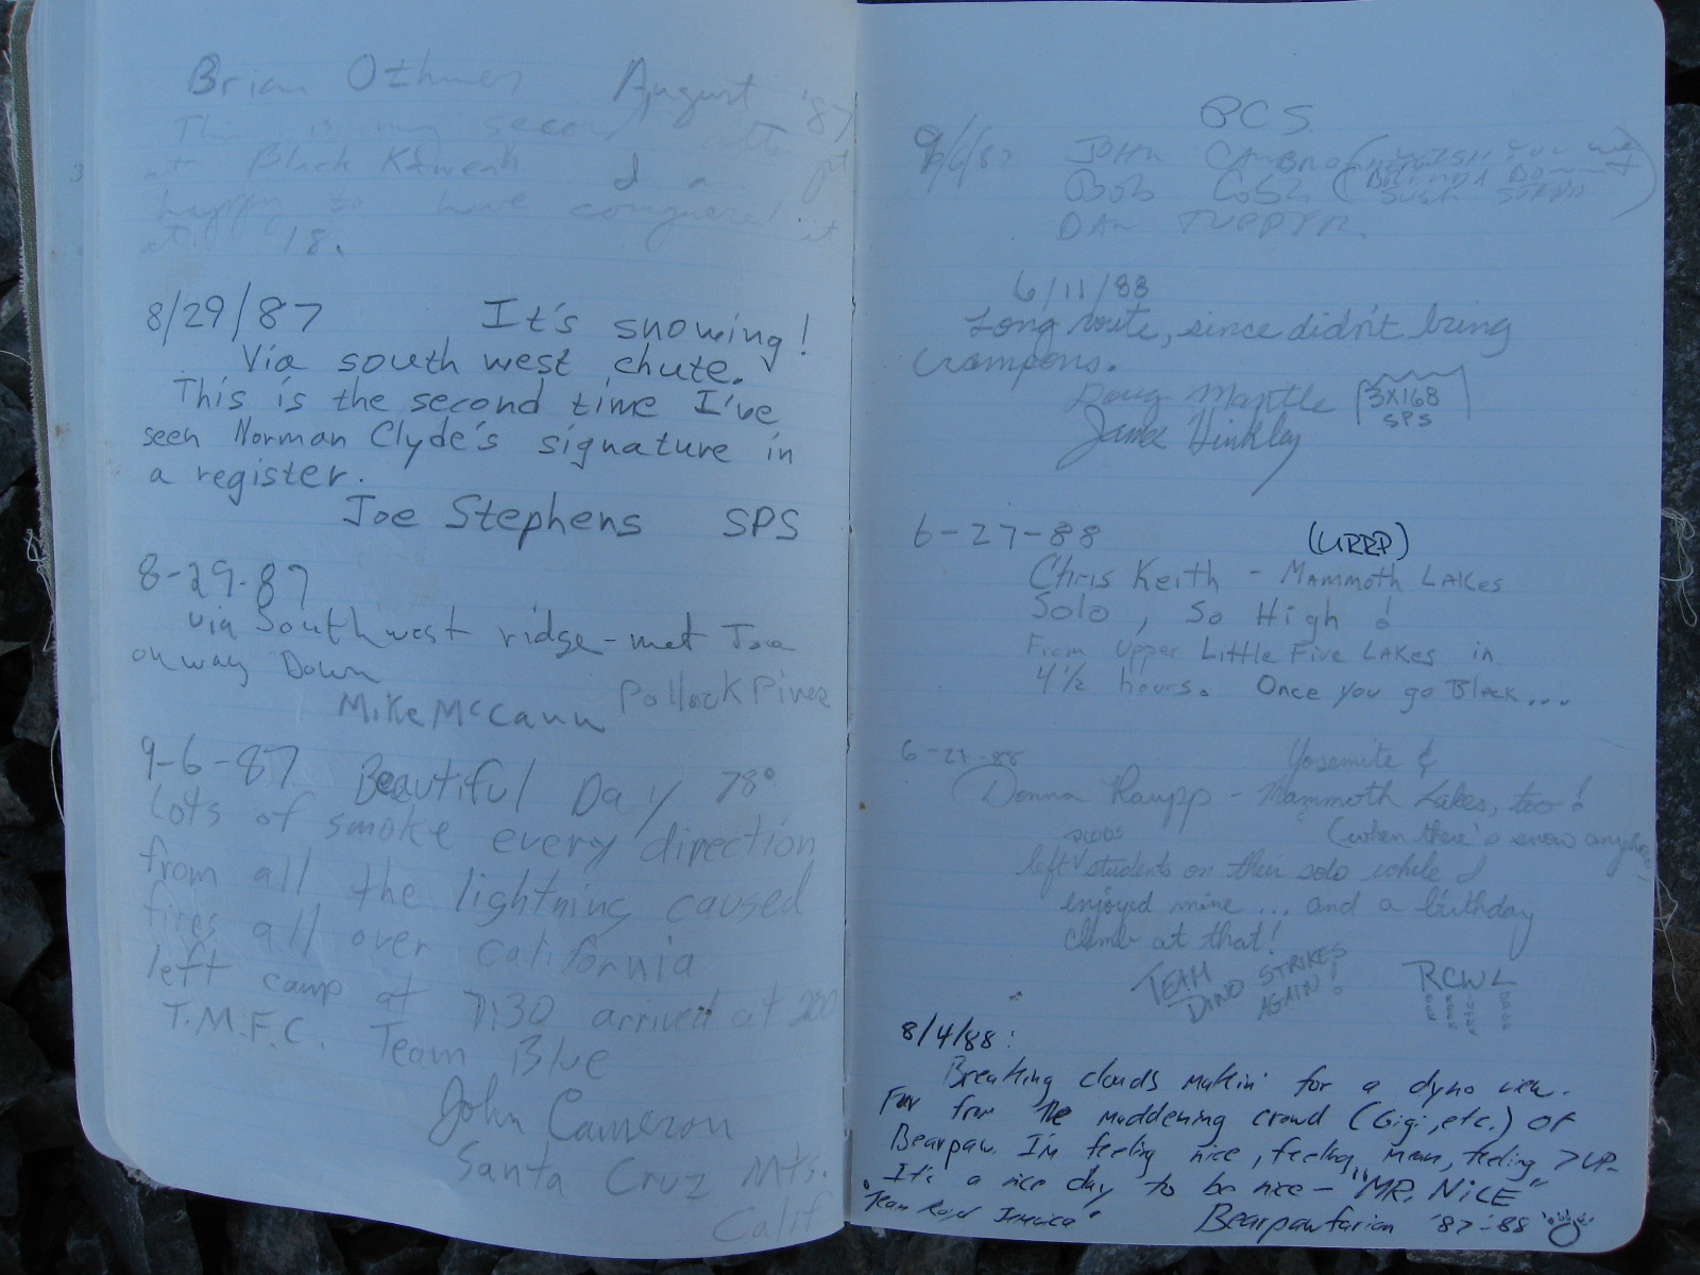 Brian Othmer August '87
This is my second
at Black Kaweah I a
happy to have conquered it
at 18.
8/29/87 It's snowing!
Via south west chute.
This is the second time I've
seen Norman Clyde's signature in
a register.
Joe Stephens SPS
8-29-87
via Southwest ridge-met Joe
on way Down
Mike McCann Pollock Pines
9-6-87 Beautiful Day 78°
lots of smoke every direction
from all the lightning caused
fires all over california
left camp at 7:30 arrived at 200
T.M.F.C. Team Blue
John Cameron
Santa Cruz Mts.
Calif
PCS
9/6/87 JOHN
BOB
DAN
6/11/88
Long route, since didn't bring
crampons.
Doug Mantle 3X168
SPS
Hinkley
6-27-88 (URRP)
Chris Keith - Mammoth LAKes
Solo, So High !
From Upper Little Five LAKes in
4 1/2 hours. Once you go Black...
6-27-88 Yosemite &
Donna Raupp - Mammoth Lakes, too!
(when there's snow anyhow)
left students on their solo while I
enjoyed mine... and a birthday
climb at that!
TEAM
DINO STRIKES
AGAIN!
RCWL
8/4/88:
Breaking clouds makin' for a dyno view.
Far from the maddening crowd (Gigi, etc.) of
Bearpaw. I'm feeling nice, feeling mean, feeling >UP-
It's a nice day to be nice - "MR. NICE"
Bearpawfarian '87-'88
"Team Jamaica"